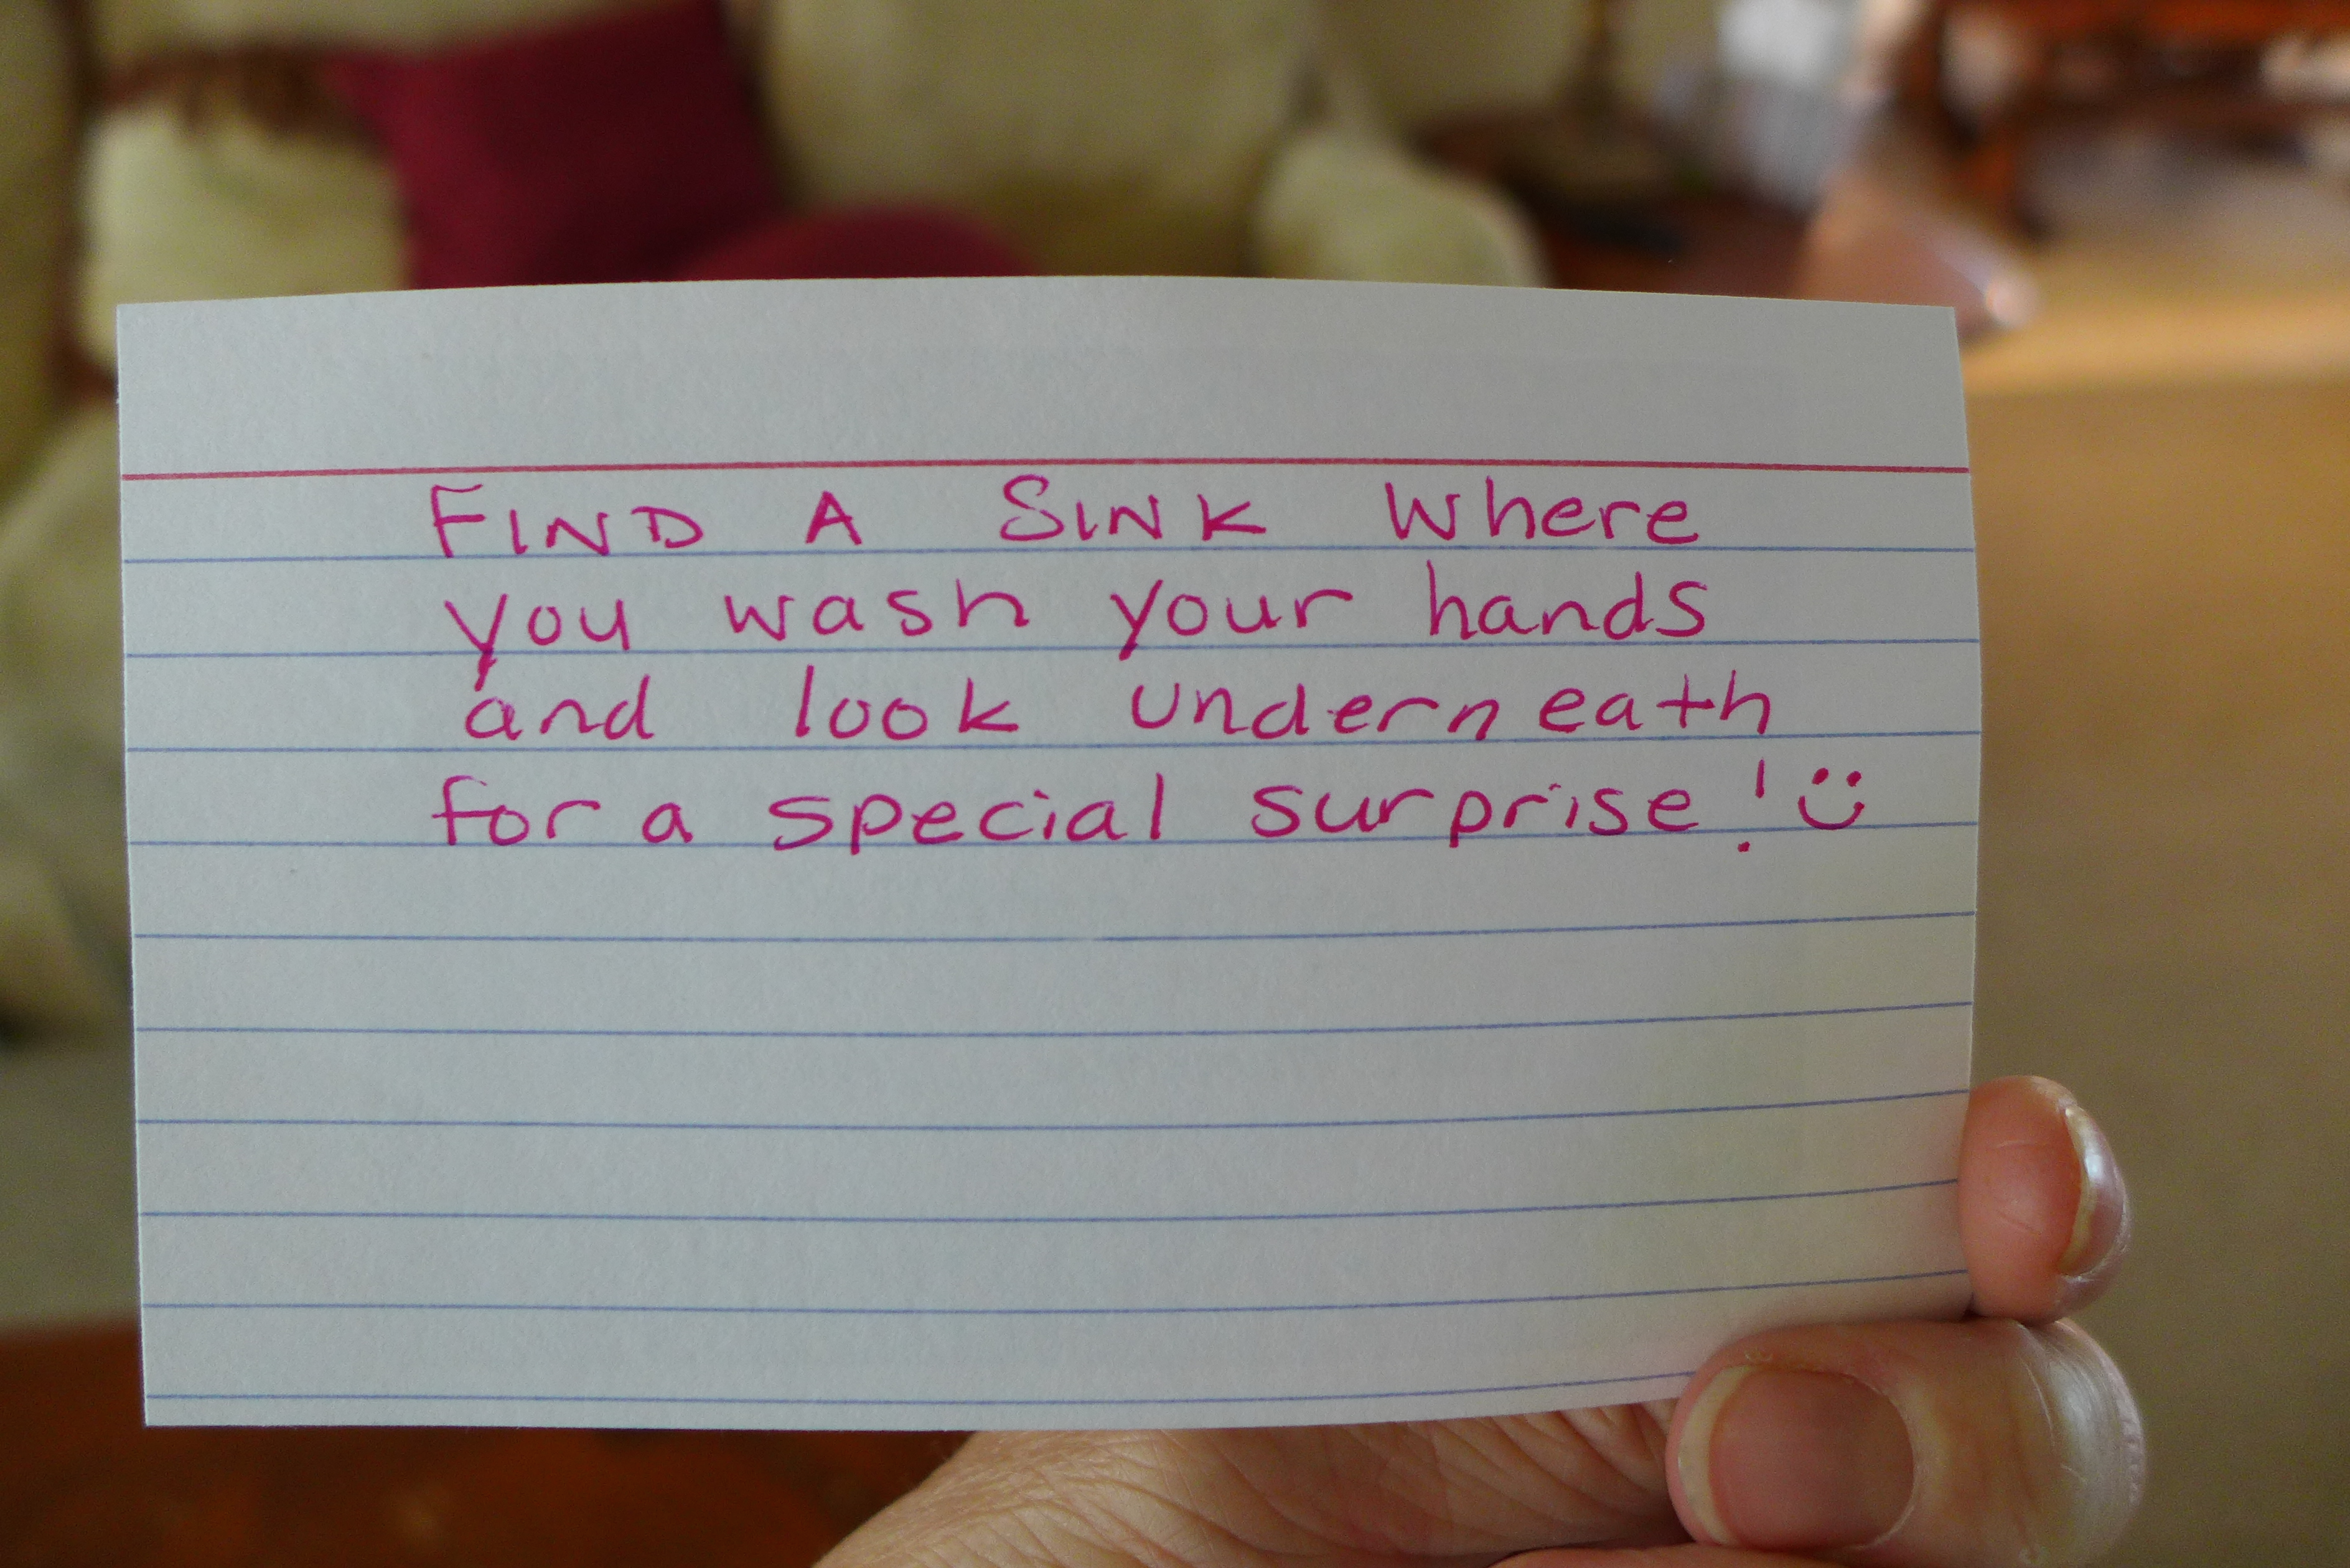 FIND A SINK Where
you wash your hands
and look underneath
for a special surprise! :)